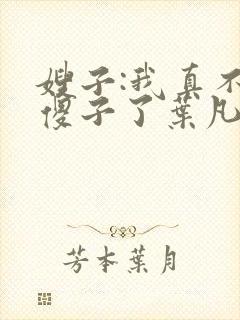 嫂子:我真不
傻子了葉凡
芳本葉月